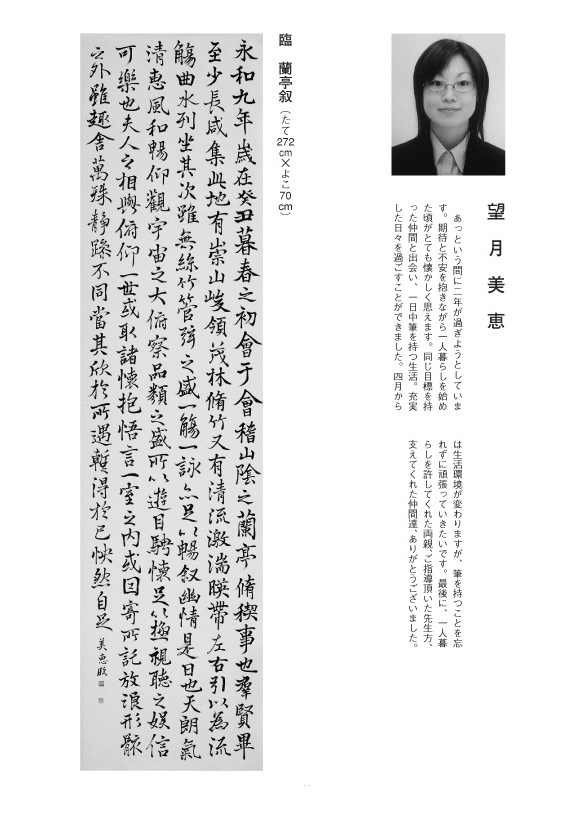 望月美恵
あっという間に二年が過ぎようとしていま
す。期待と不安を抱きながら一人暮らしを始め
た頃がとても懐かしく思えます。同じ目標を持
った仲間と出会い、一日中筆を持つ生活。充実
した日々を過ごすことができました。四月から
は生活環境が変わりますが、筆を持つことを忘
れずに頑張っていきたいです。最後に、一人暮
らしを許してくれた両親、ご指導頂いた先生方、
支えてくれた仲間達、ありがとうございました。
臨 蘭亭叙（たて272cm×よこ70cm）
永和九年歲在癸丑暮春之初會于會稽山陰之蘭亭脩稧事也羣賢畢
至少長咸集此地有崇山峻領茂林脩竹又有清流激湍暎帶左右引以為流
觴曲水列坐其次雖無絲竹管弦之盛一觴一詠亦足以暢叙幽情是日也天朗氣
清惠風和暢仰觀宇宙之大俯察品類之盛所以遊目騁懷足以極視聽之娱信
可樂也夫人之相與俯仰一世或取諸懷抱悟言一室之内或因寄所託放浪形骸
之外雖趣舍萬殊靜躁不同當其欣於所遇蹔得於己怏然自足 美恵臨